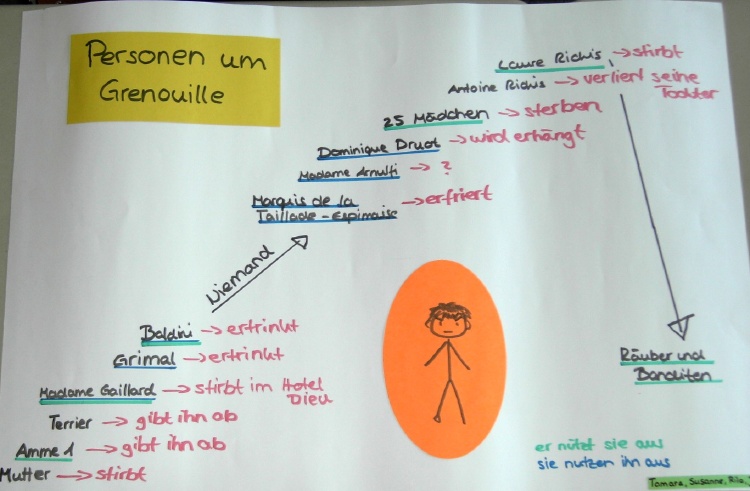 Personen um
Grenouille
Laure Richis, → stirbt
Antoine Richis → verliert seine
Tochter
25 Mädchen → sterben
Dominique Druot → wird erhängt
Madame Arnulfi → ?
Marquis de la
Taillade-Espinaise → erfriert
Niemand
Baldini → ertrinkt
Grimal → ertrinkt
Madame Gaillard → stirbt im Hotel
Dieu
Terrier → gibt ihn ab
Amme 1 → gibt ihn ab
Mutter → stirbt
Räuber und
Banditen
er nützt sie aus
sie nutzen ihn aus
Tamara, Susanne,